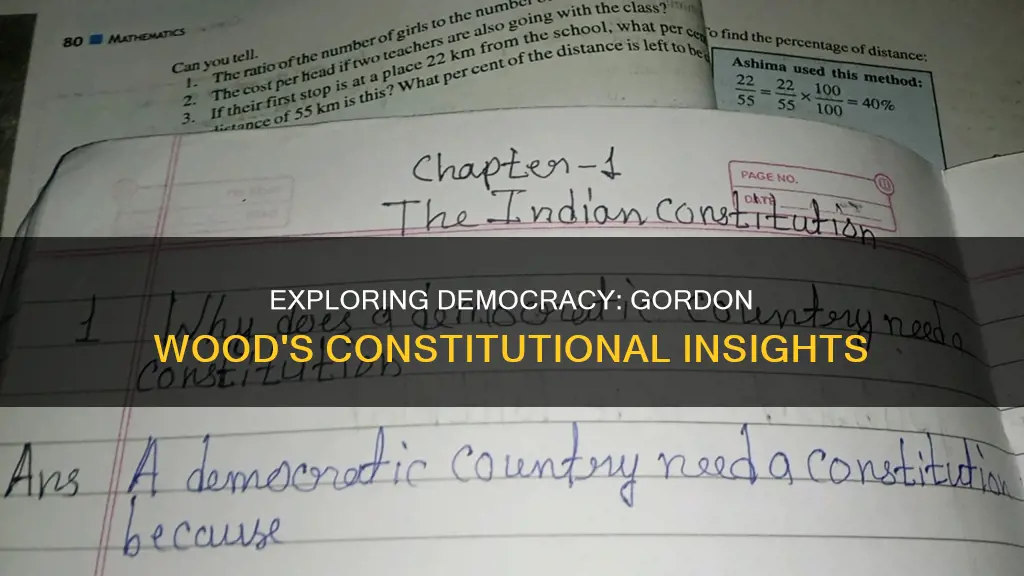 80 MATHEMATICS
Can you tell.
1. The ratio of the number of girls to the number
2. The cost per head if two teachers are also going with the class?
3. If their first stop is at a place 22 km from the school, what per cent
distance of 55 km is this? What per cent of the distance is left to be
To find the percentage of distance:
Ashima used this method:
22/55 = 22/55 × 100/100 = 40%
Chapter-1
PAGE NO.
DATE
The Indian Constitution
EXPLORING DEMOCRACY: GORDON
WOOD'S CONSTITUTIONAL INSIGHTS
1 Why does a democratic country need a
constitution
Ans A democratic country need a constitution
because